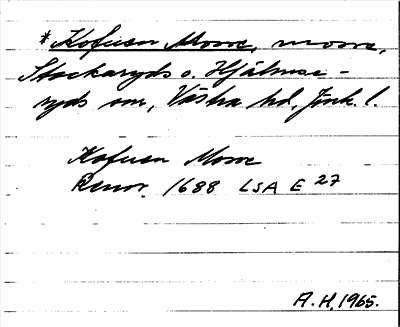 *Kofusen Mosse, mosse,
Stockaryds o. Hjälmse-
ryds snr, Västra hd, Jönk. l.
Kofusen Mosse
Renov. 1688 LSA E 27
A. H. 1965.